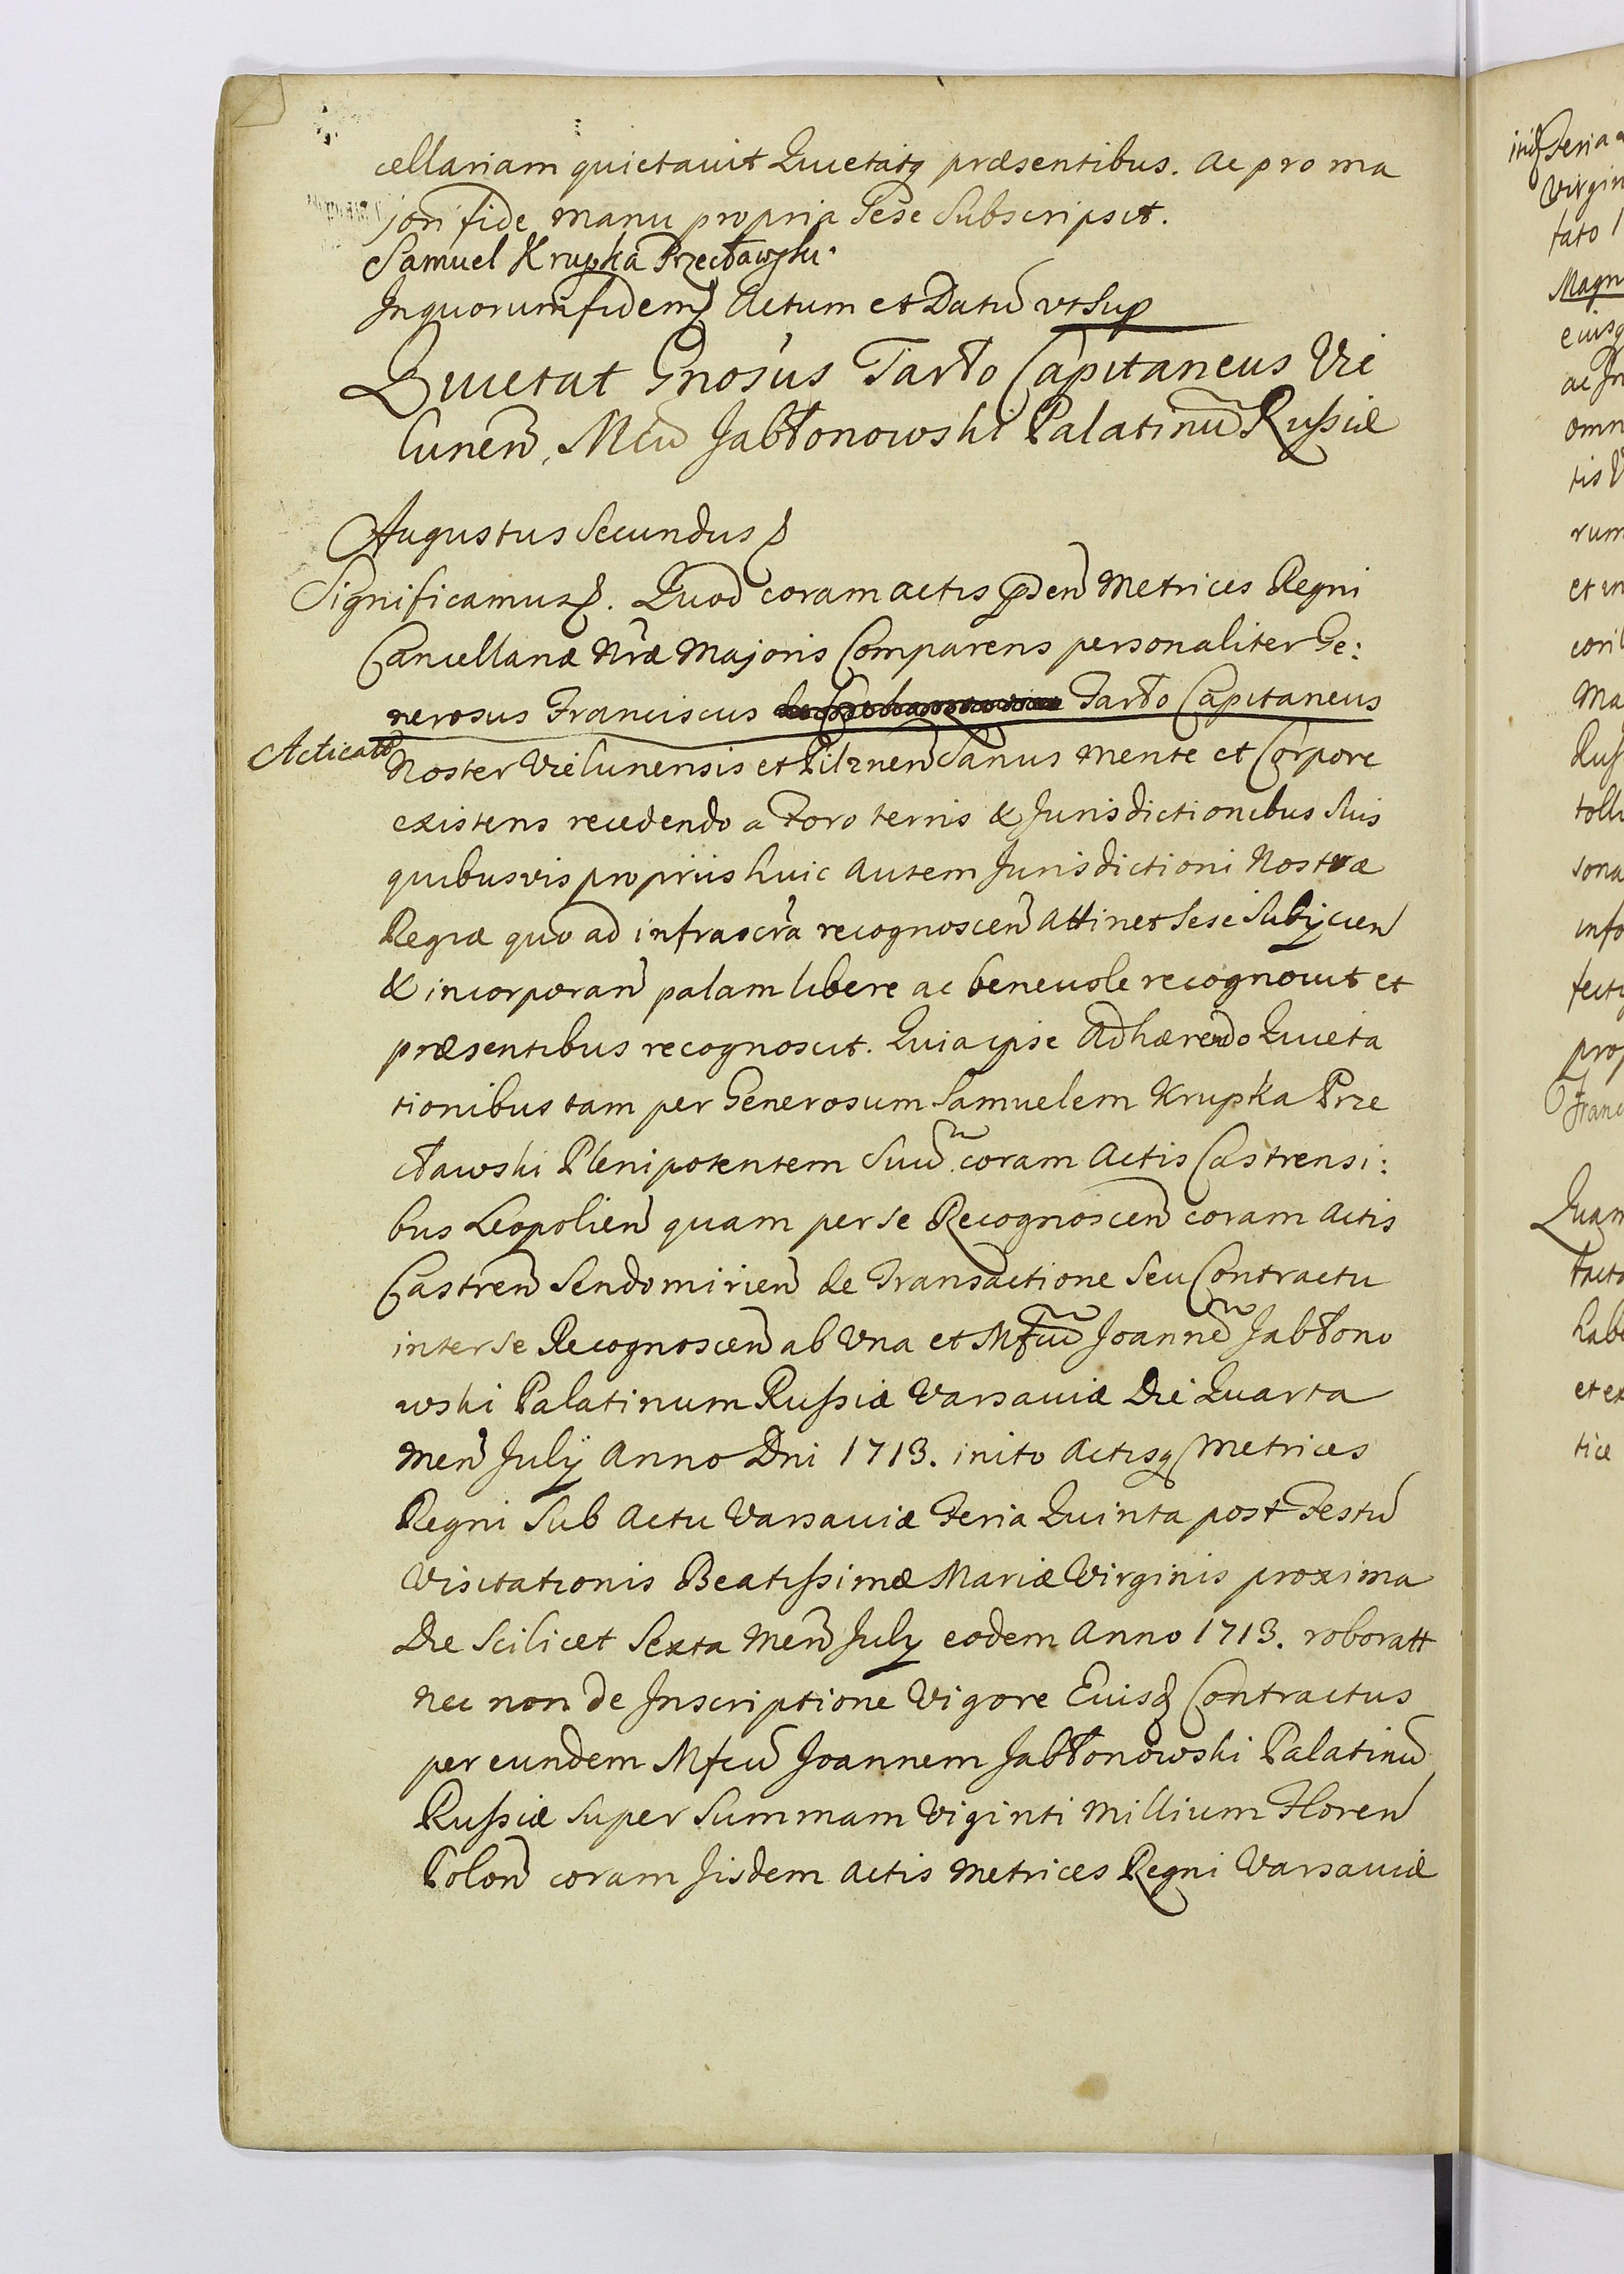 cellariam quietavit Quietatq præsentibus. Ac pro ma
jori fide manu propria Sese Subscripsit.
Samuel Krupka Przecławski.
In quorum fidem Actum et Datū vt Sup
Quietat Gnosus Tarło Capitaneus Vie
lunen̄, Mcū Jabłonowski Palatinū Rußiæ
Augustus Secundus
Significamus. Quod coram actis p̄den̄ Metrices Regni
Cancellariæ Nr̄æ Majoris Comparens personaliter Ge:
nerosus Franciscus Tarło Capitaneus
Acticat̄
Noster Vielunensis et Pilznen̄ Sanus mente et Corpore
existens recedendo a Foro terris & Jurisdictionibus Suis
quibusvis propriis huic Autem Jurisdictioni Nostræ
Regiæ quo ad infrascr̄a recognoscen̄ attinet Sese Subÿcien̄
& incorporan̄ palam libere ac benevole recognovit et
præsentibus recognoscit. Quia ipse Adhærendo Quieta
tionibus tam per Generosum Samuelem Krupka Prze
cławski Plenipotentem Suū coram Actis Castrensi:
bus Leopolien̄ quam per se Recognoscen̄ coram Actis
Castren̄ Sendomirien̄ de Transactione Seu Contractu
inter se Recognoscen̄ ab Vna et Mfcū Joannē Jabłono
wski Palatinum Rußiæ Varsaviæ Die Quarta
Men̄ Julÿ Anno Dni 1713. inito Actisq Metrices
Regni Sub Actu Varsaviæ Feria Quinta post Festū
Visitationis Beatißimæ Mariæ Virginis proxima
Die Scilicet Sexta Men̄ July eodem Anno 1713. roboratt
nec non de Inscriptione Vigore Euisd Contractus
per eundem Mfcū Joannem Jabłonowski Palatinū
Rußiæ Super Summam Viginti Millium Floren̄
Polon̄ coram Iisdem Actis Metrices Regni Varsaviæ